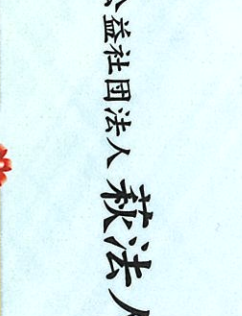 公益社団法人 萩法人